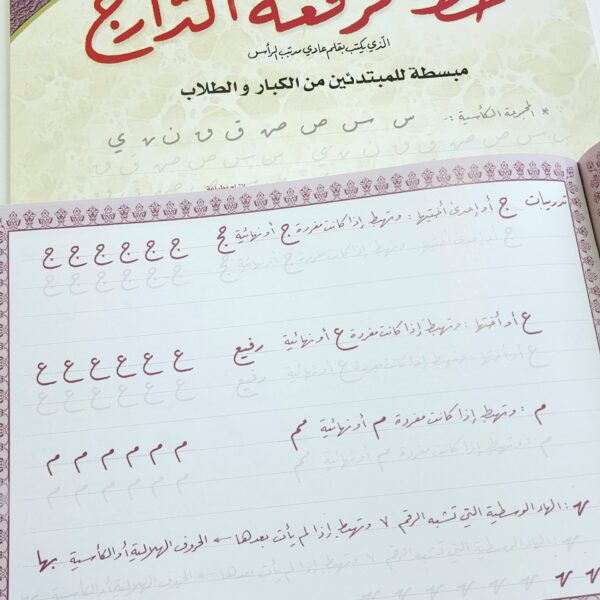 خط الرقعة الدارج
الذي يكتب بقلم عادي مدبب الرأس
مبسطة للمبتدئين من الكبار والطلاب
* المجموعة الكأسية :- س س ص ص ق ق ن ن ي
تدريبات ج أو إحدى أختيها : وتهبط إذا كانت مفردة ج أو نهائية جج ج ج ج ج ج ج
ع أو أختها : وتهبط إذا كانت مفردة ع أو نهائية رفيع ع ع ع ع ع ع
م : وتهبط إذا كانت مفردة م أو نهائية مم م م م م م م
ـهـ : الهاء الوسطية التي تشبه الرقم ٧ وتهبط إذا لم يأت بعدها ← الحروف الهلالية أو الكأسية بها